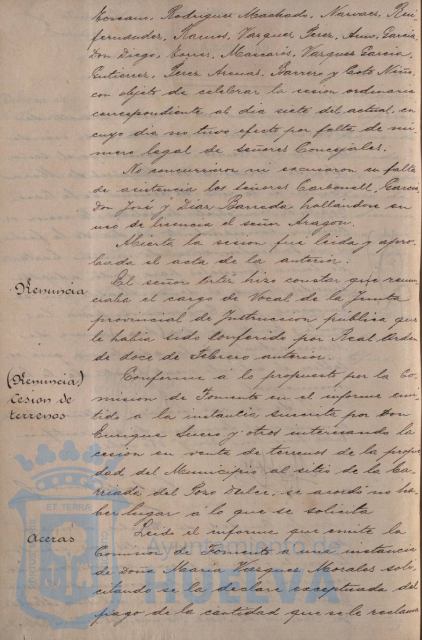 Rossam, Rodriguez Machado, Narvaez, Rui
fernandez, Ramos, Vazquez Perez, Garcia
Don Diego, Torres, Mascarós, Vazquez Garcia,
Gutierrez, Perez Arenas, Barrero y Coto Niño,
con objeto de celebrar la sesion ordinaria
correspondiente al dia siete del actual, en
cuyo dia no tuvo efecto por falta de nú-
mero legal de señores Concejales.
No concurrieron ni escusaron su falta
de asistencia los señores Carbonell, Garcia
Don José y Diaz Barreda hallandose en
uso de licencia el señor Aragon.
Abierta la sesion fué leida y apro-
bada el acta de la anterior.
Renuncia
El señor hizo constar que renun
ciaba el cargo de Vocal de la Junta
provincial de Instruccion pública que
le habia sido conferido por Real Orden
de doce de Febrero anterior.
(Renuncia)
Cesion de
terrenos
Conforme á lo propuesto por la Co-
mision de Fomento en el informe emi-
tido á la instancia suscrita por Don
Enrique Suero y otros interesando la
cesion en venta de terrenos de la propie
dad del Municipio al sitio de la Ca-
ñada del Pozo dulce, se acordó no ha-
ber lugar á lo que se solicita
Aceras
Leido el informe que emite la
Comision de Fomento a una instancia
de Doña Maria Vazquez Morales soli-
citando se la declare exceptuada del
pago de la cantidad que se le reclama
ET TERRA
Ayuntamiento de
HUELVA